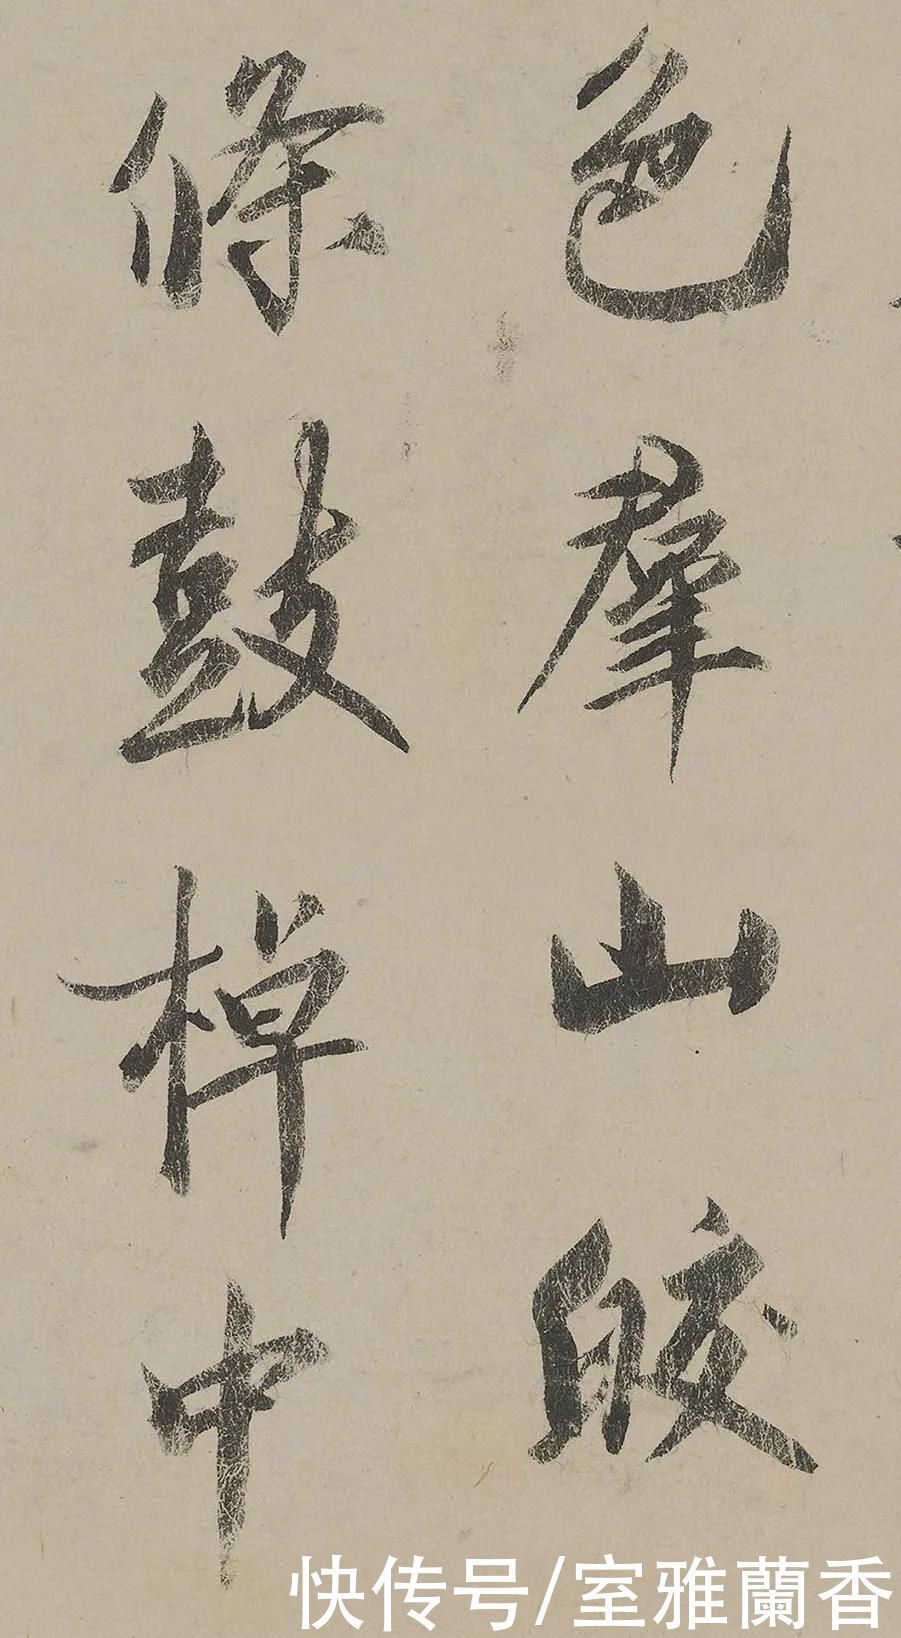 色羣山皎
條鼓棹中
快传号/室雅蘭香